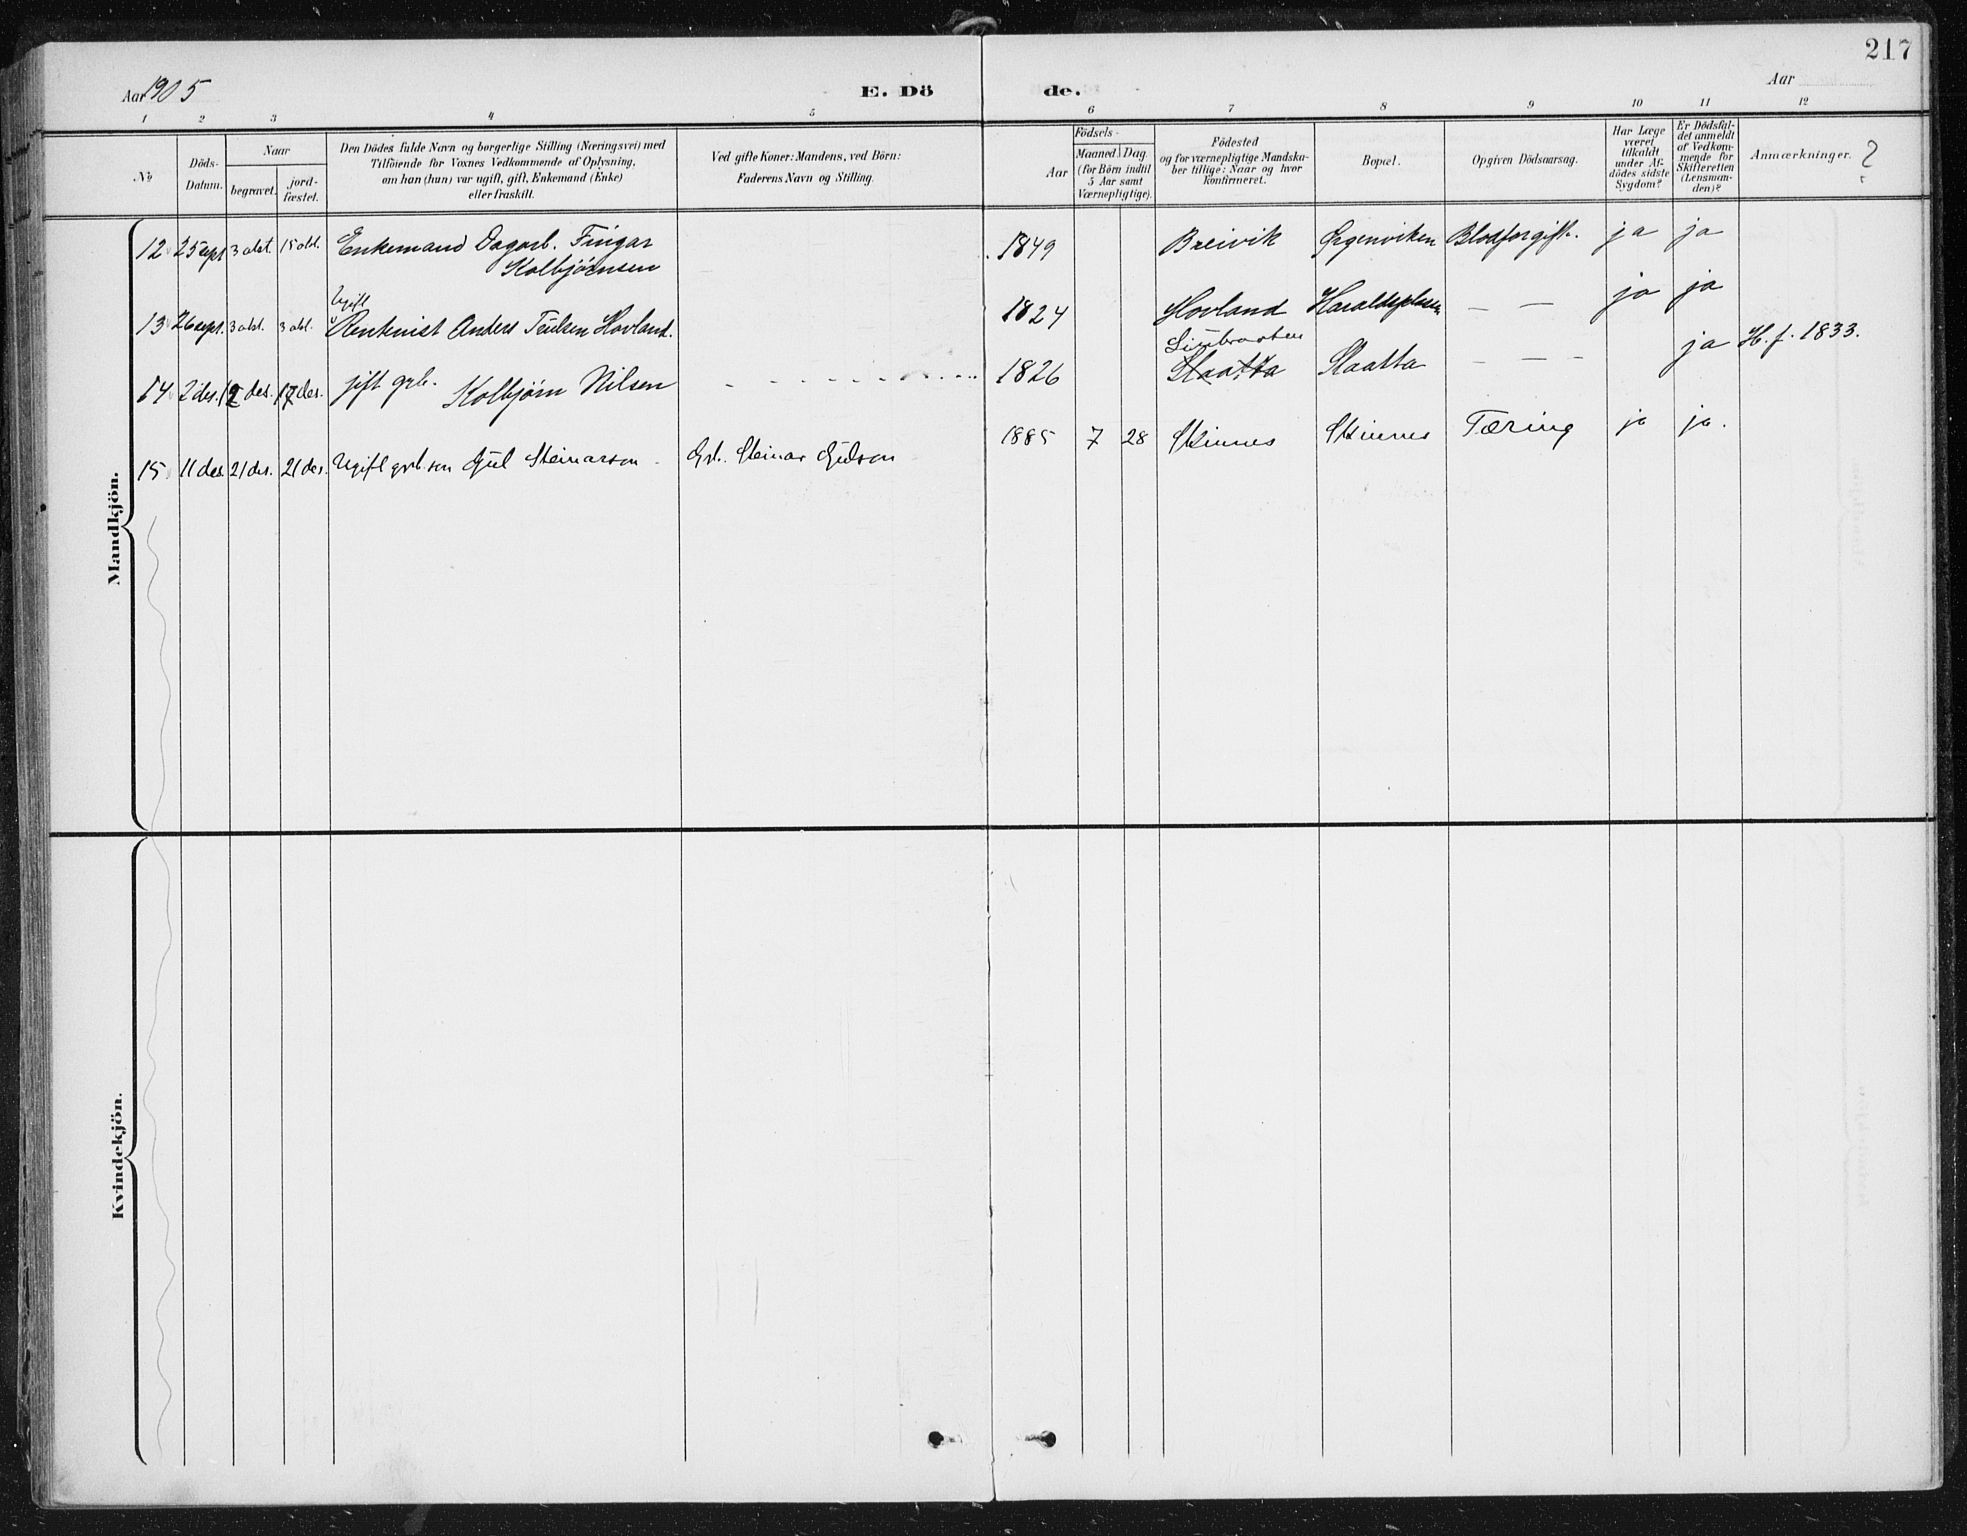 217
Aar 1905
E. Dö
de.
Aar
1 2 3 4 5 6 7 8 9 10 11 12
No
Döds-
Datum.
Naar
begravet.
jord-
fæstet.
Den Dödes fulde Navn og borgerlige Stilling (Næringsvei) med
Tilföiende for Voxnes Vedkommende af Oplysning,
om han (hun) var ugift, gift, Enkemand (Enke)
eller fraskilt.
Ved gifte Koner: Mandens, ved Börn:
Faderens Navn og Stilling.
Födsels-
Aar
Maaned. Dag.
(for Börn indtil
5 Aar samt
Værnepligtige).
Födested
og for værnepligtige Mandska-
ber tillige: Naar og hvor
konfirmeret.
Bopæl.
Opgiven Dödsaarsag.
Har Læge
været
tilkaldt
under Af-
dödes sidste
Sygdom?
Er Dödsfal-
det anmeldt
af Vedkom-
mende for
Skifteretten
(Lensman-
den)?
Anmærkninger.
?
Mandkjön.
12 25 sept 3 okt. 15 okt. Enkemand Dagarb. Fingar
Kolbjørnsen
1849 Breivik Ørgenviken Blodforgift. ja ja
Ugift
13 26 sept. 3 okt. 3 okt. Anders Hovland.
1824 Hovland Haraldsplassen — — ja ja
14 2 des. 12 des. 17 des. gift grb. Kolbjørn Nilsen
1826 Staatta Staatta - - - ja H. f. 1833.
15 11 des. 21 des. 21 des. Ugift grb. søn Gul Steinarson Grb. Steinar Gulson
1885 7 28 Skinnes Skinnes Tæring ja ja.
Kvindekjön.